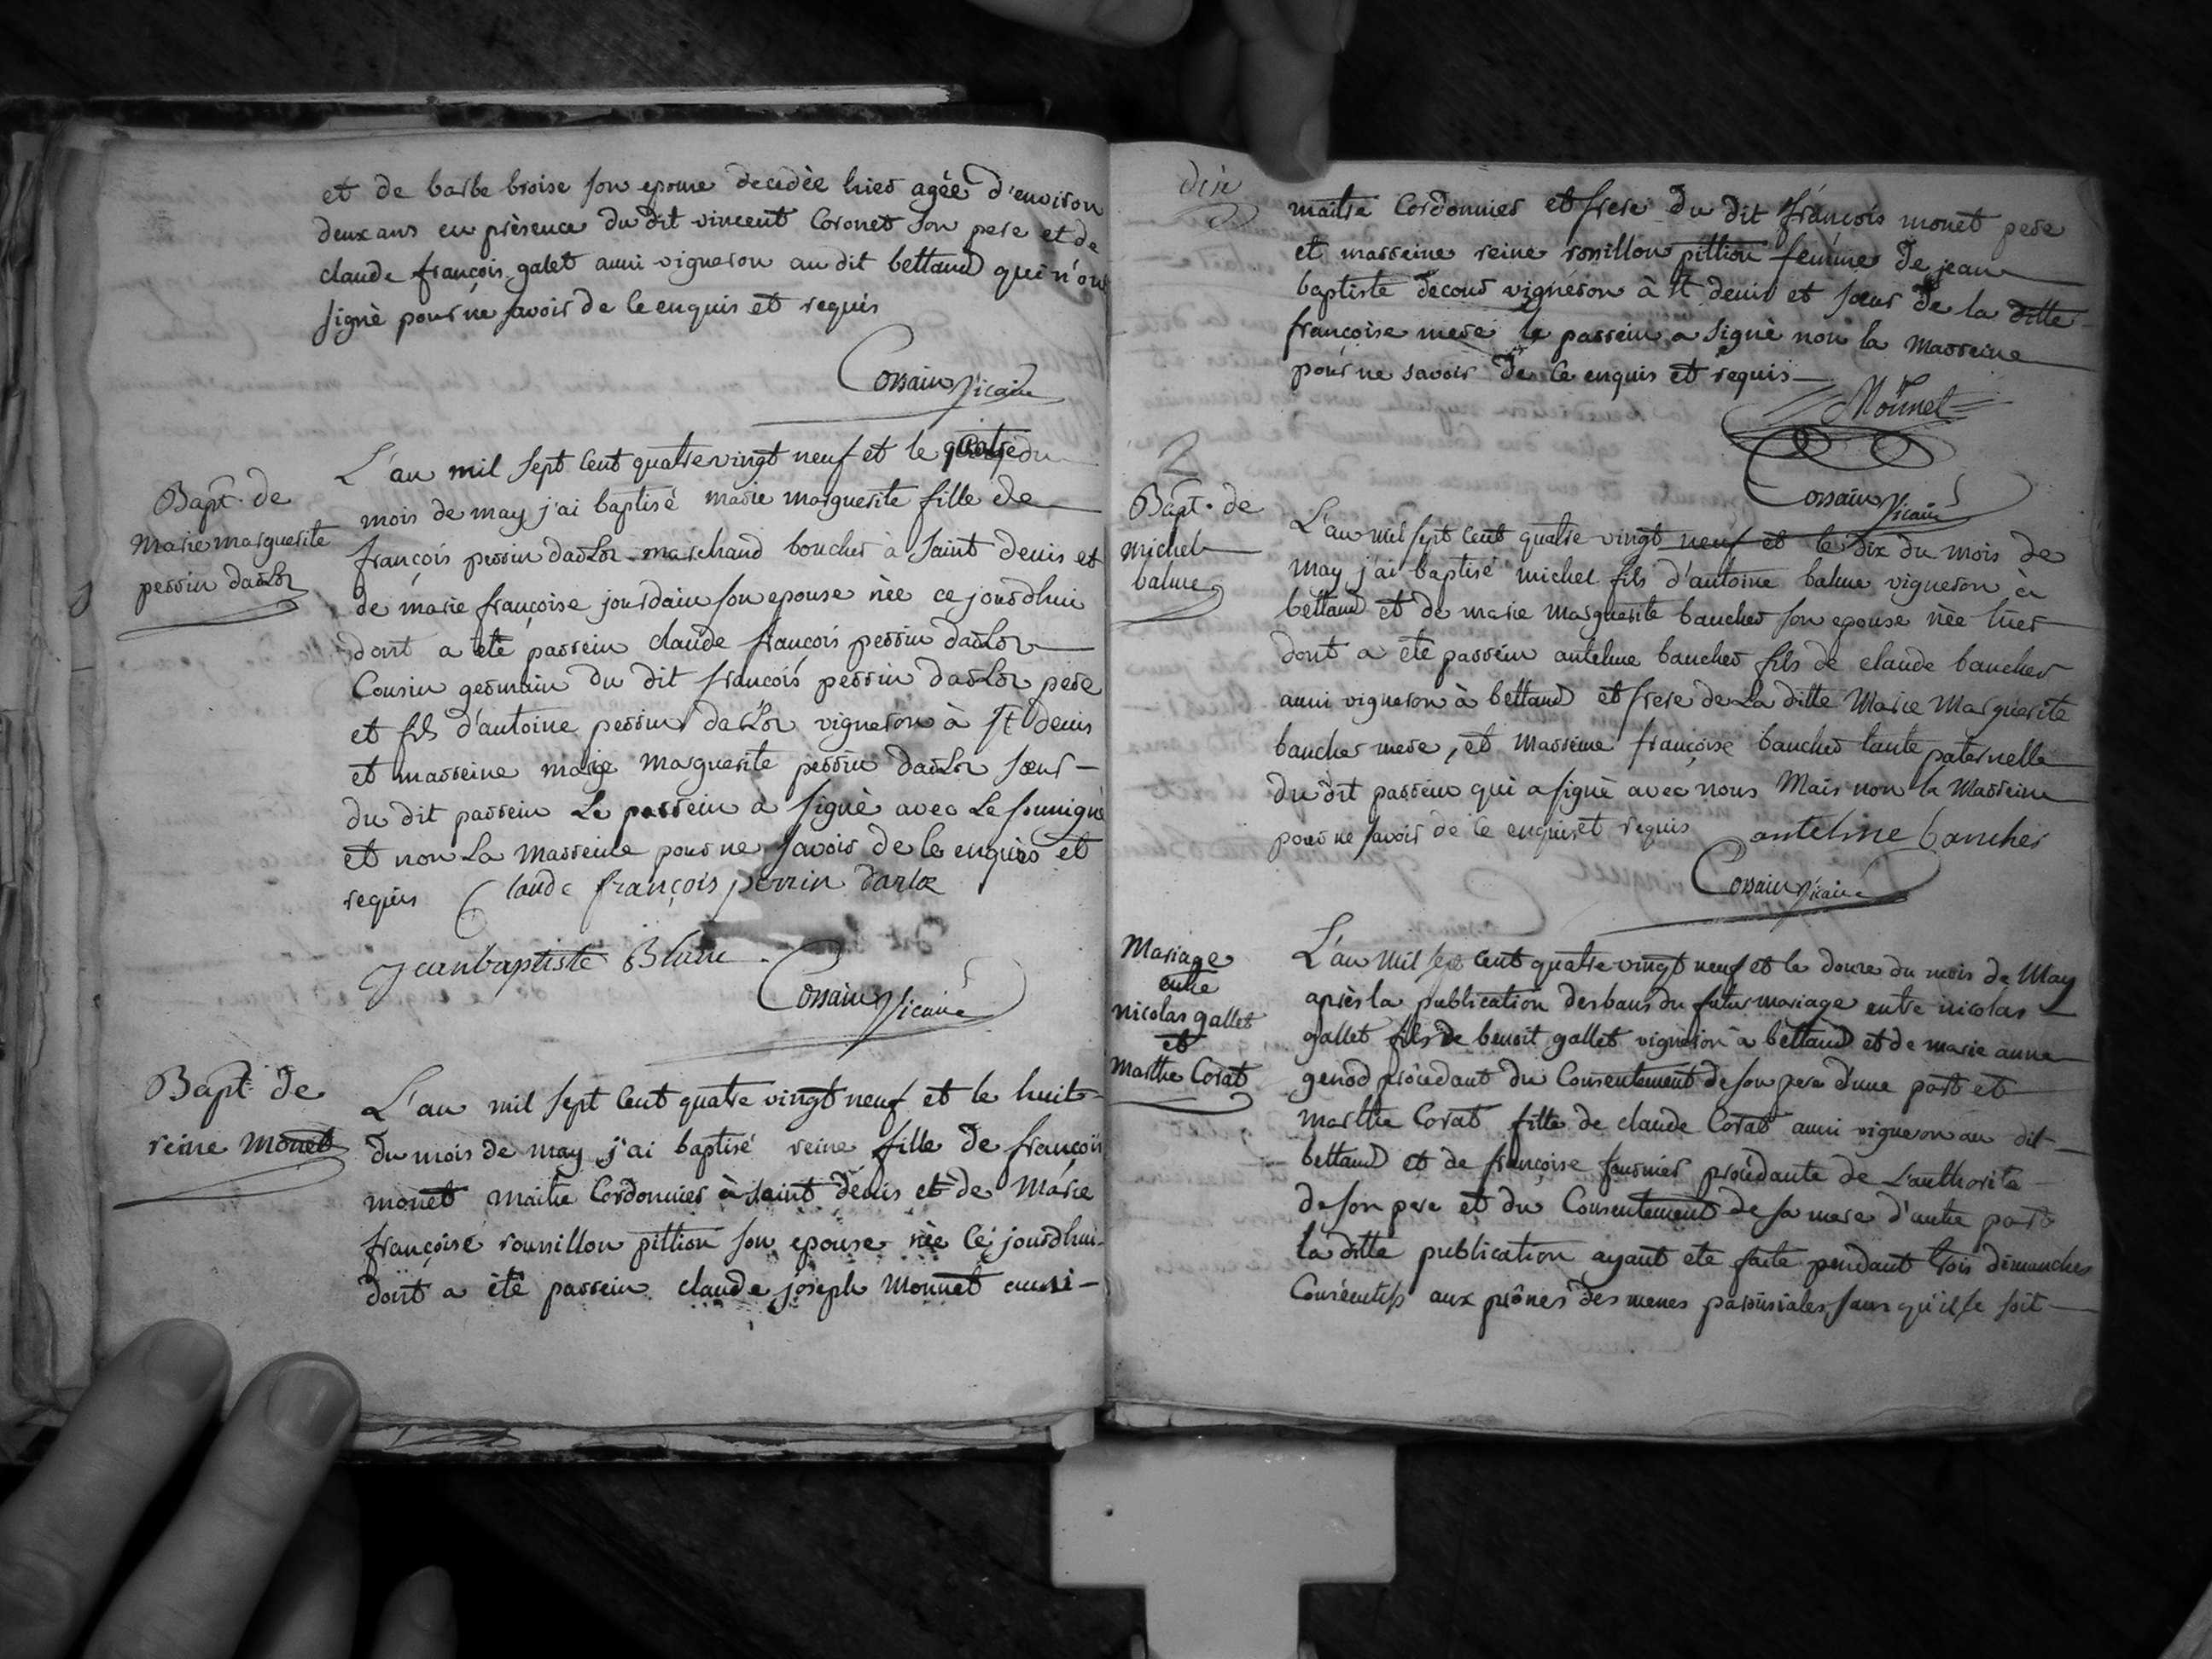 et de barbe broise son epouse decedèe hier agée d'environ
deux ans en présence du dit vincent Coronet son pere et de
claude françois galet aussi vigneron au dit bettand qui n'ont
signè pour ne savoir de ce enquis et requis
Cossain Vicaire
Bapt. de
Marie marguerite
perrin darloz
L'an mil sept cent quatre vingt neuf et le quatre du
mois de may j'ai baptisé marie marguerite fille de
françois perrin darloz marchand boucher à saint denis et
de marie françoise jourdain son epouse nèe ce jourdhui
dont a eté parrein claude françois perrin darloz
Cousin germain du dit françois perrin darloz pere
et fils d'antoine perrin darloz vigneron à St denis
et marreine marie marguerite perrin darloz sœur
du dit parrein Le parrein a signè avec Le soussigné
et non La marreine pour ne savoir de ce enquis et
requis Claude françois perrin darloz
Jeanbaptiste Blanc
Cossain Vicaire
Bapt. de
reine Monet
L'an mil sept cent quatre vingt neuf et le huit
du mois de may j'ai baptisé reine fille de françois
monet maitre Cordonnier à saint denis et de Marie
françoise roussillon pittion son epouse nèe ce jourdhui
dont a èté parrein claude joseph Monnet aussi
dix
maitre Cordonnier et frere du dit françois monet pere
et marreine reine rossillon pittion femme de jean
baptiste decour vigneron à St denis et sœur de la ditte
françoise mere le parrein a signè non la marreine
pour ne savoir de ce enquis et requis
Mounet
Cossain Vicaire
2
Bapt. de
michel
balme
L'an mil sept cent quatre vingt neuf et le dix du mois de
may j'ai baptisé michel fils d'antoine balme vigneron à
bettand et de marie marguerite baucher son epouse nèe hier
dont a èté parrein antelme baucher fils de claude baucher
aussi vigneron à bettand et frere de La ditte Marie Marguerite
baucher mere, et Marreine françoise baucher tante paternelle
du dit parrein qui a signè avec nous Mais non la Marreine
pour ne savoir de ce enquis et requis antelme baucher
Cossain Vicaire
Mariage
entre
nicolas gallet
et
Marthe Corat
L'an Mil sept cent quatre vingt neuf et le douze du mois de May
après la publication des bans du futur mariage entre nicolas
gallet fils de benoit gallet vigneron à bettand et de marie anne
genod procedant du Consentement de son pere d'une part et
marthe Corat fille de claude Corat aussi vigneron au dit
bettand et de françoise fournier procedante de L'authorité
de son pere et du Consentement de sa mere d'autre part
la ditte publication ayant ete faite pendant trois dimanches
Consécutifs aux prônes des messes paroissiales, sans qu'il se soit